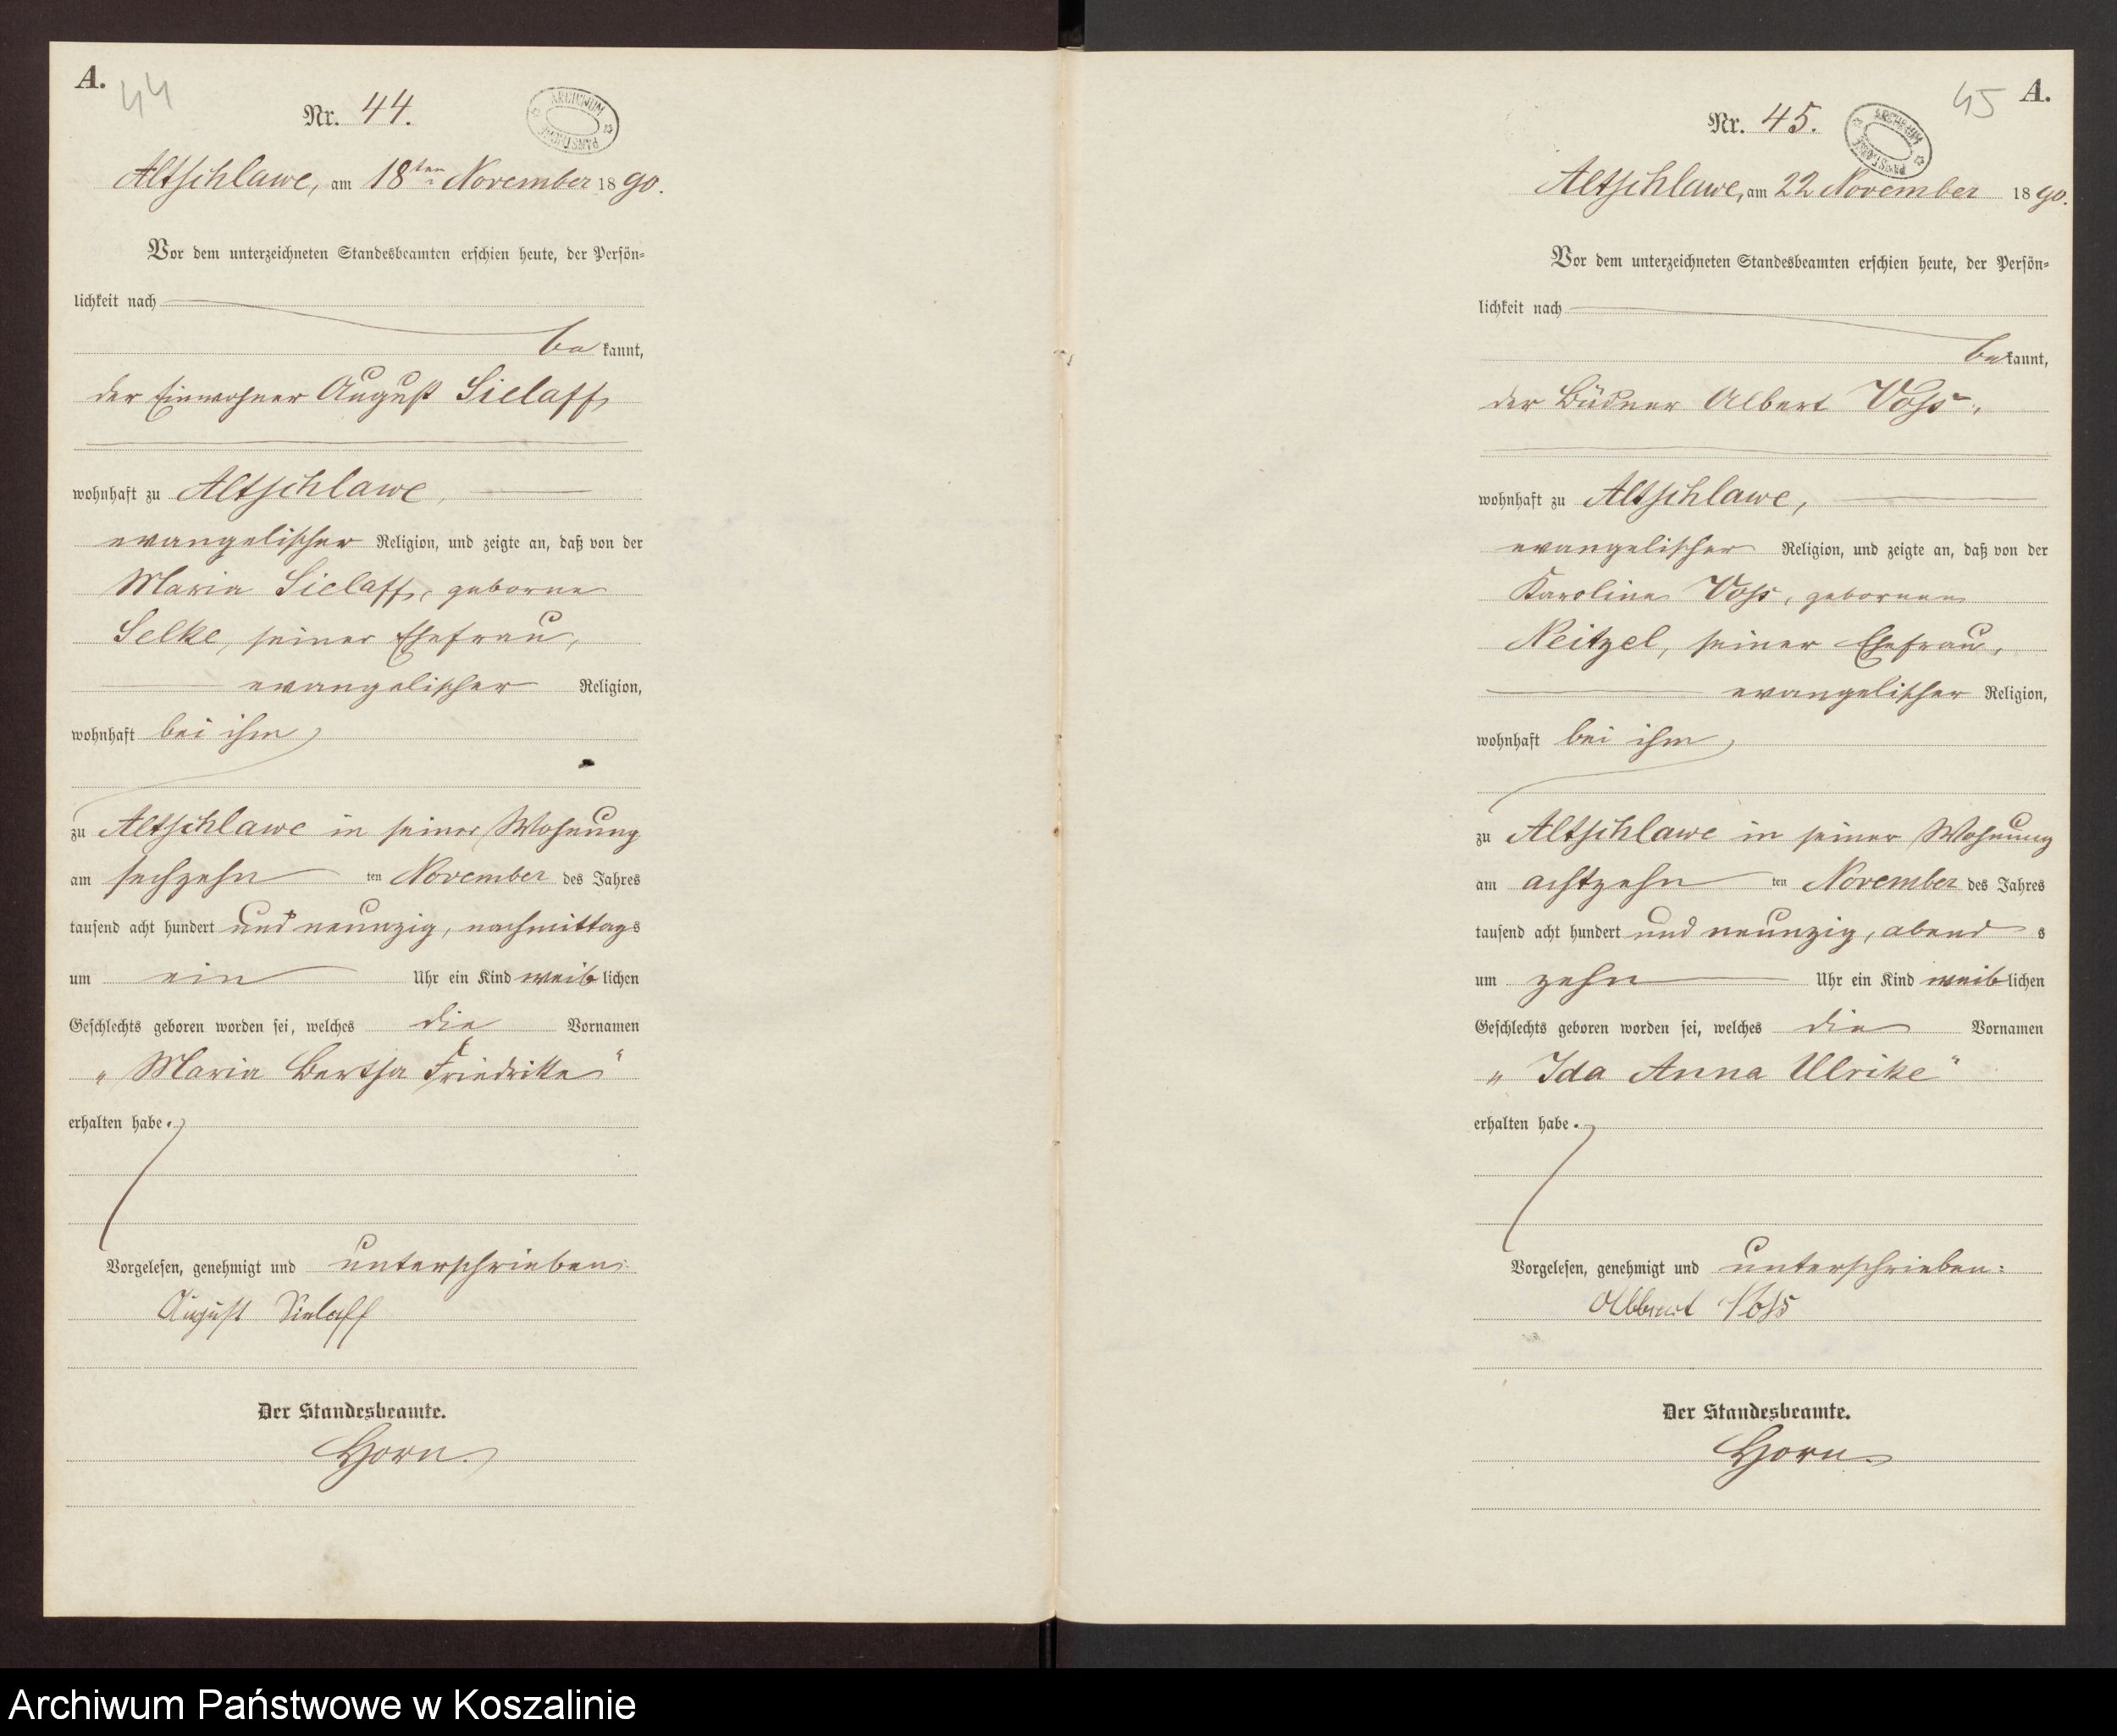 A.
44
Nr. 44.
ARCHIWUM PAŃSTWOWE
Altschlawe, am 18ten November 1890.
Vor dem unterzeichneten Standesbeamten erschien heute, der Persön-
lichkeit nach
be kannt,
der Einwohner August Sielaff
wohnhaft zu Altschlawe,
evangelischer Religion, und zeigte an, daß von der
Maria Sielaff, geborne
Selke, seiner Ehefrau,
evangelischer Religion,
wohnhaft bei ihm
zu Altschlawe in seiner Wohnung
am sechzehn ten November des Jahres
tausend acht hundert und neunzig, nachmittags
um ein Uhr ein Kind weiblichen
Geschlechts geboren worden sei, welches die Vornamen
„Maria Bertha Friedrike“
erhalten habe.
Vorgelesen, genehmigt und unterschrieben:
August Sielaff
Der Standesbeamte.
Horn.
45
A.
Nr. 45.
ARCHIWUM PAŃSTWOWE
Altschlawe, am 22 November 1890.
Vor dem unterzeichneten Standesbeamten erschien heute, der Persön-
lichkeit nach
bekannt,
der Büdner Albert Voss,
wohnhaft zu Altschlawe,
evangelischer Religion, und zeigte an, daß von der
Karoline Voss, gebornen
Neitzel, seiner Ehefrau,
evangelischer Religion,
wohnhaft bei ihm,
zu Altschlawe in seiner Wohnung
am achtzehn ten November des Jahres
tausend acht hundert und neunzig, abend s
um zehn Uhr ein Kind weiblichen
Geschlechts geboren worden sei, welches die Vornamen
„Ida Anna Ulrike“
erhalten habe.
Vorgelesen, genehmigt und unterschrieben:
Albert Voss
Der Standesbeamte.
Horn.
Archiwum Państwowe w Koszalinie